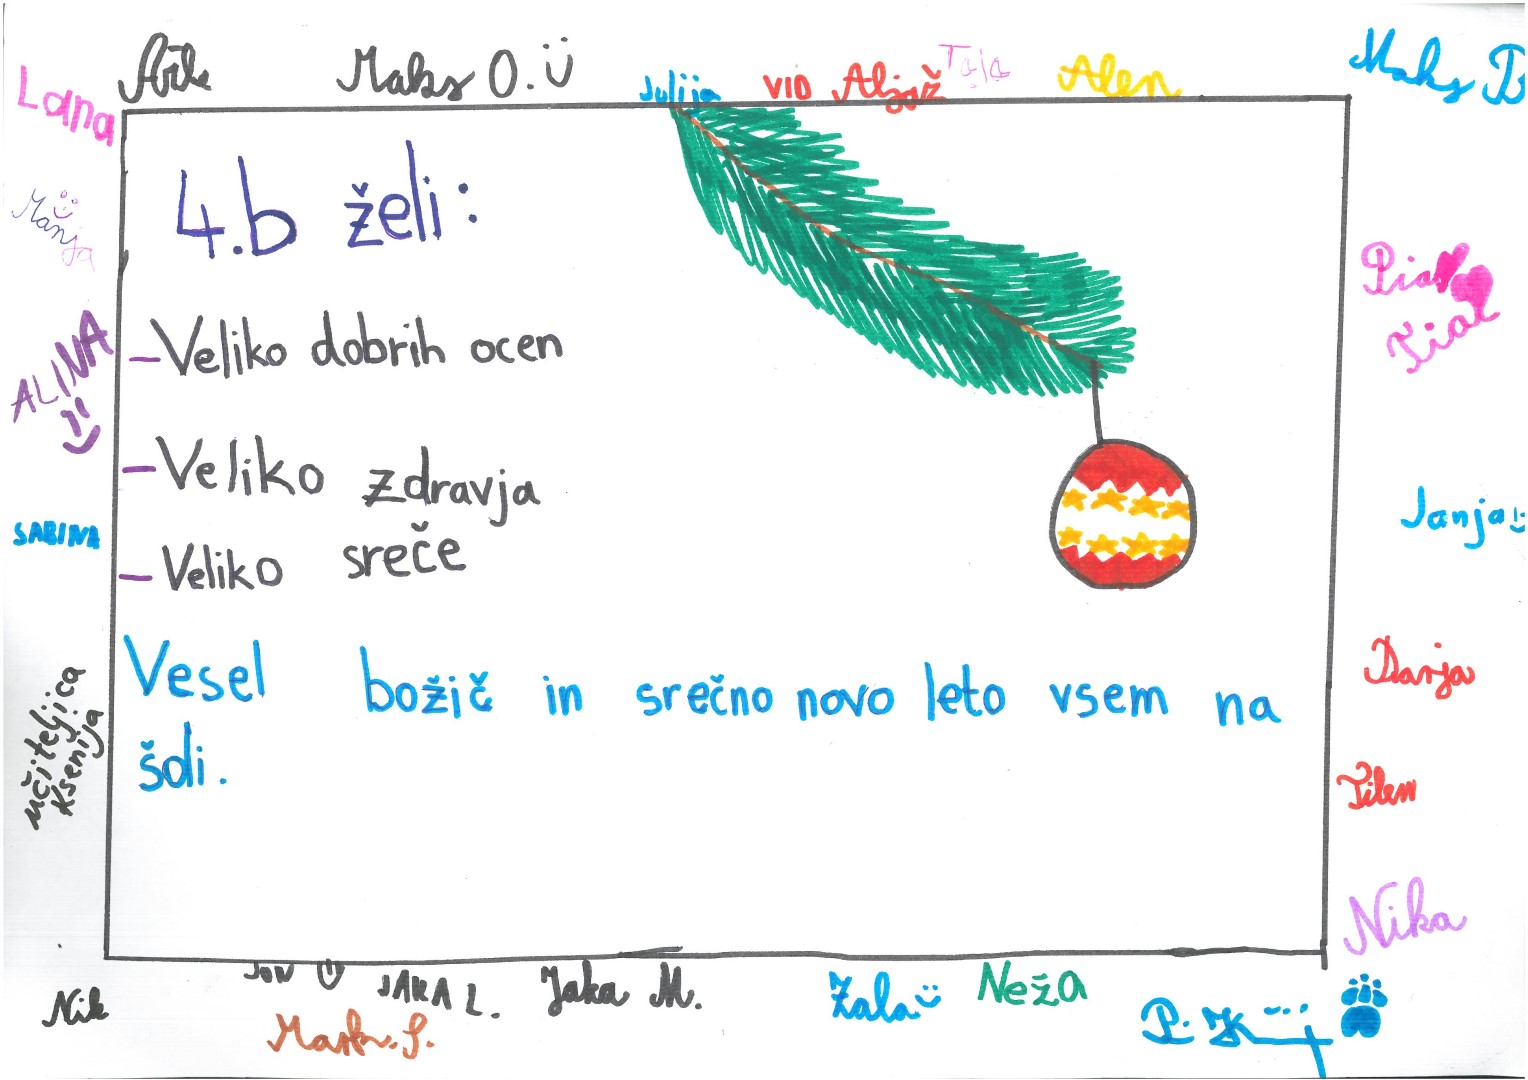 Maks O.
Julija
VID
Aljaž
Taja
Alen
Maks B
Lana
Manja
ALINA
SABINA
učiteljica
Ksenija
4.b želi:
-Veliko dobrih ocen
-Veliko zdravja
-Veliko sreče
Vesel božič in srečno novo leto vsem na
šoli.
Pia
Tial
Janja
Darja
Tilen
Nika
Nik
Jon
JAKA L.
Jaka M.
Mark. S.
Zala
Neža